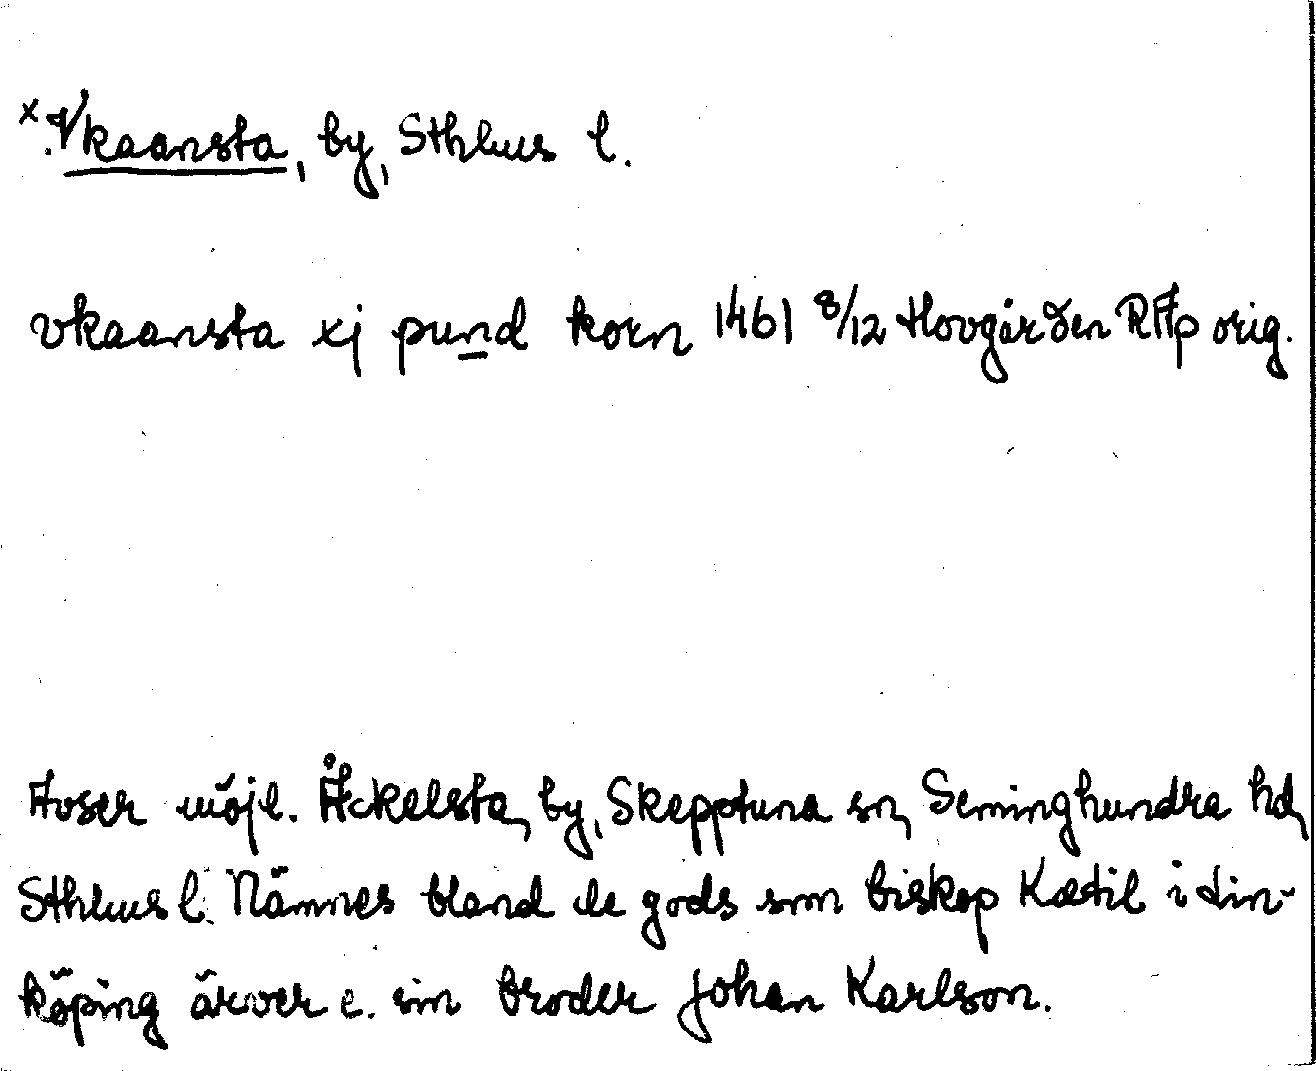 x Vkaansta, by, Sthlms l.
vkaansta xj pund korn 1461 8/12 Hovgården RAp orig.
Avser möjl. Åckelsta, by, Skepptuna sn, Seminghundra hd,
Sthlms l. Nämnes bland de gods som biskop Kætil i Lin-
köping ärver e. sin broder Johan Karlson.